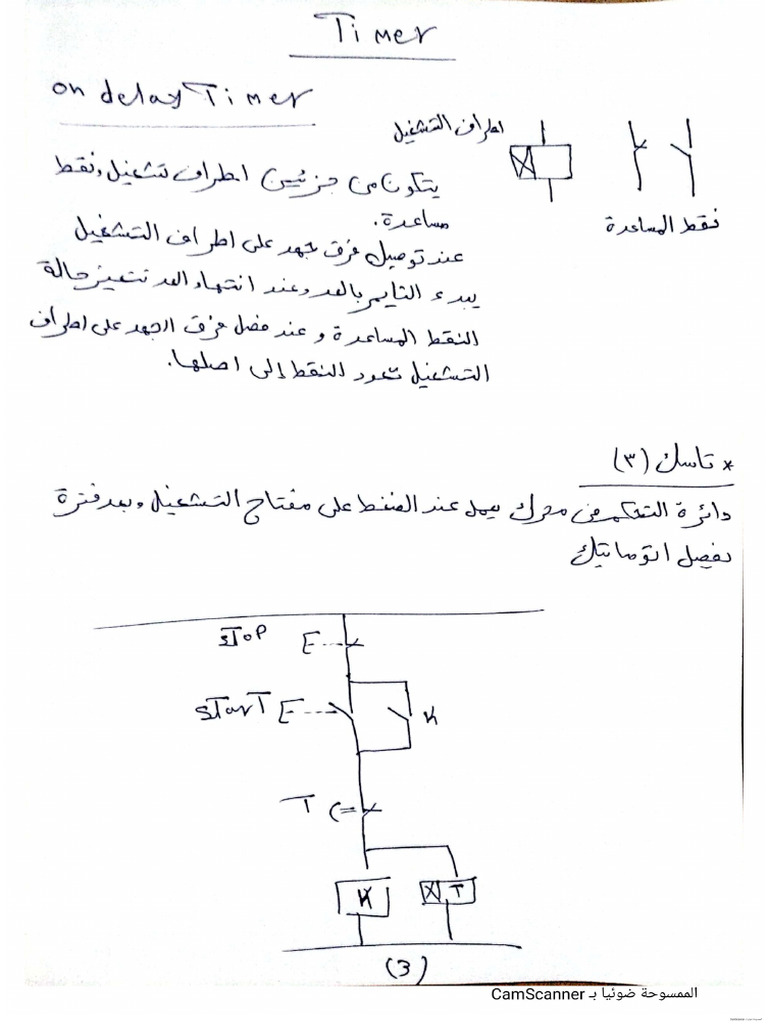 Timer
on delay Timer
اطراف التشغيل
نقط المساعدة
يتكون من جزئين اطراف تشغيل ونقط
مساعدة.
عند توصيل فرق جهد على اطراف التشغيل
يبدء التايمر بالعد وعند انتهاء العد تتغير حالة
النقط المساعدة وعند فصل فرق الجهد على اطراف
التشغيل تعود النقط إلى اصلها.
* تاسك (٣)
دائرة التحكم في محرك يعمل عند الضغط على مفتاح التشغيل وبعد فترة
يفصل اتوماتيك
STOP
START
K
T
K
T
(3)
الممسوحة ضوئيا بـ CamScanner